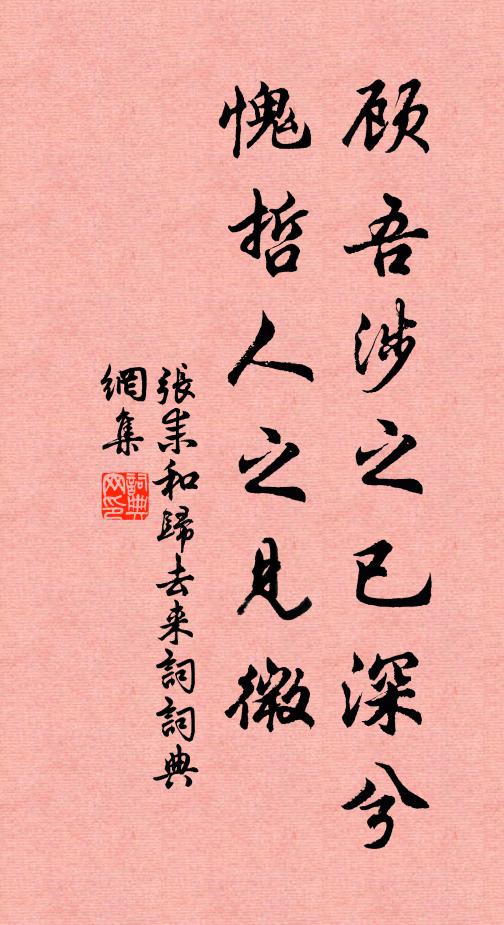 顾吾涉之已深兮
愧哲人之見微
張耒和歸去来詞詞典
網集
詞典
网印